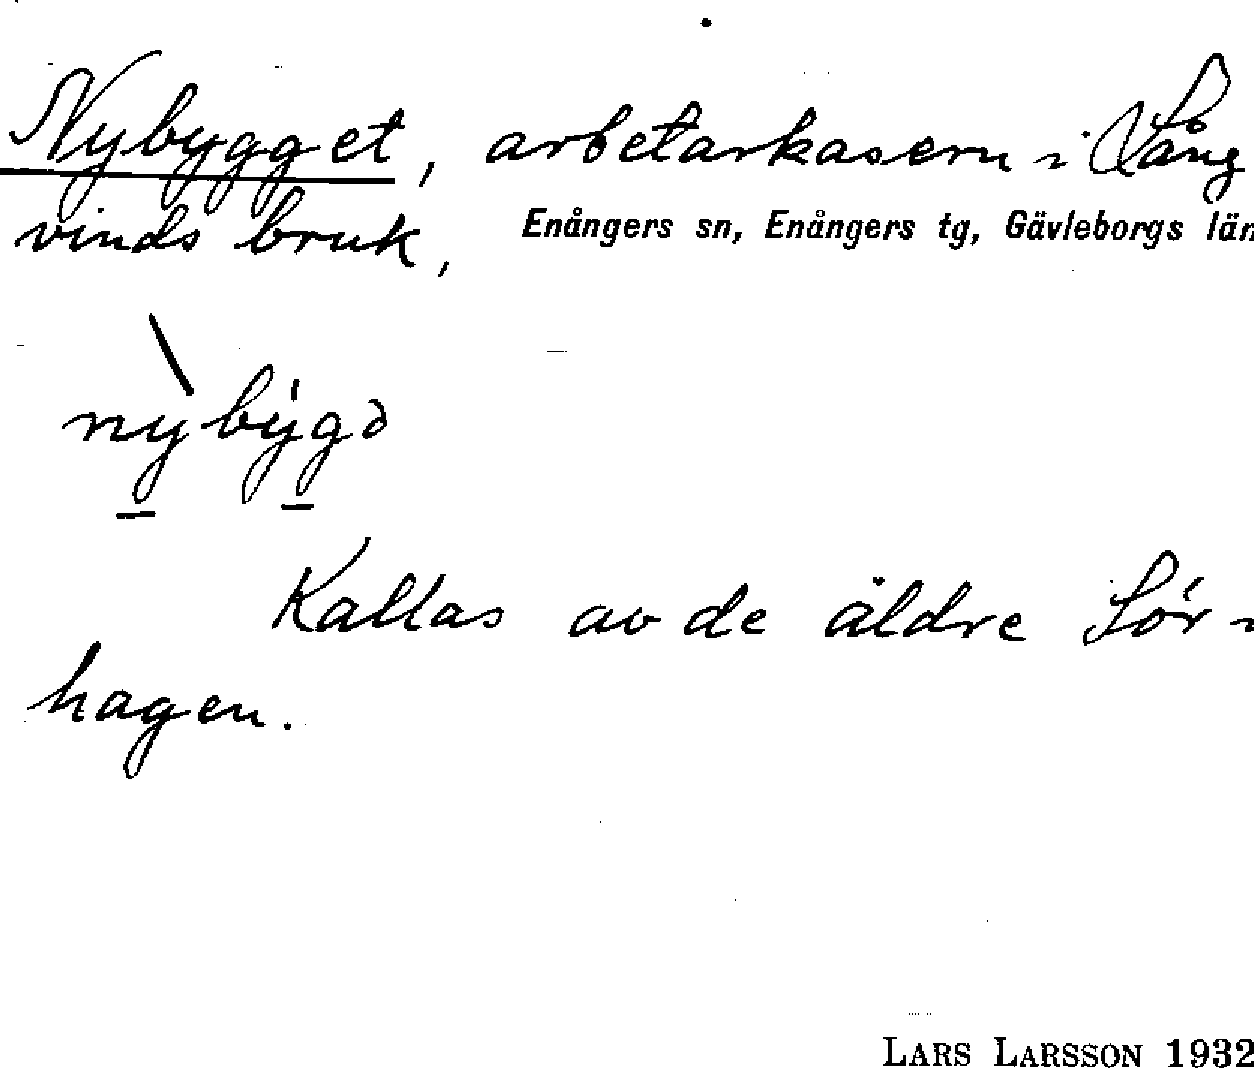 Nybygget, arbetarkasern i Lång
vinds bruk, Enångers sn, Enångers tg, Gävleborgs län
nybygə
Kallas av de äldre Sör-
hagen.
LARS LARSSON 1932